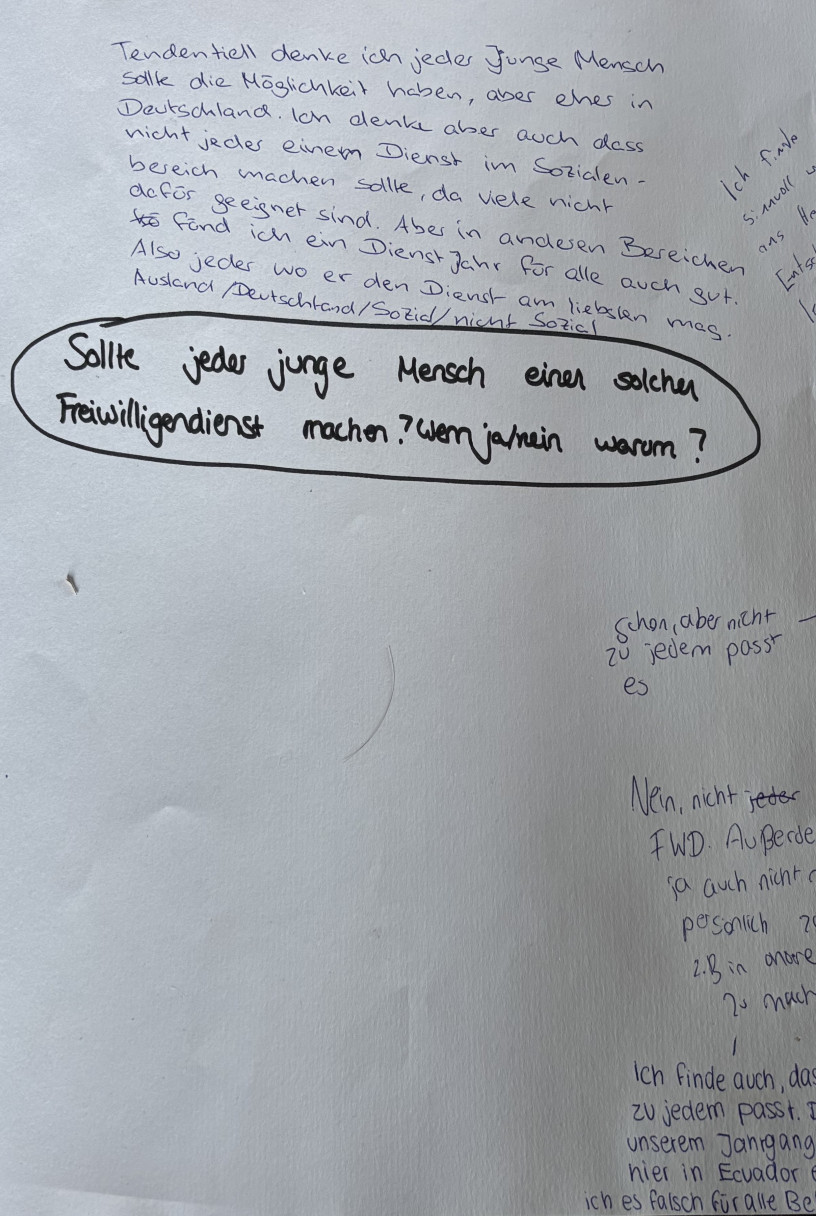 Tendentiell denke ich jeder Junge Mensch
sollte die Möglichkeit haben, aber eher in
Deutschland. Ich denke aber auch dass
nicht jeder einem Dienst im Sozialen-
bereich machen sollte, da viele nicht
dafür geeignet sind. Aber in anderen Bereichen
fänd ich ein Dienst Jahr für alle auch gut.
Also jeder wo er den Dienst am liebsten mag.
Ausland/Deutschland/Sozial/nicht Sozial
Ich finde
sinnvoll
ans
Sollte jeder junge Mensch einen solchen
Freiwilligendienst machen? Wenn ja/nein warum?
Schon, aber nicht
zu jedem passt
es
Nein, nicht jeder
FWD. Außerde
ja auch nicht
persönlich
z.B in andre
zu mach
Ich finde auch, das
zu jedem passt.
unserem Jahrgang
hier in Ecuador
ich es falsch für alle Be